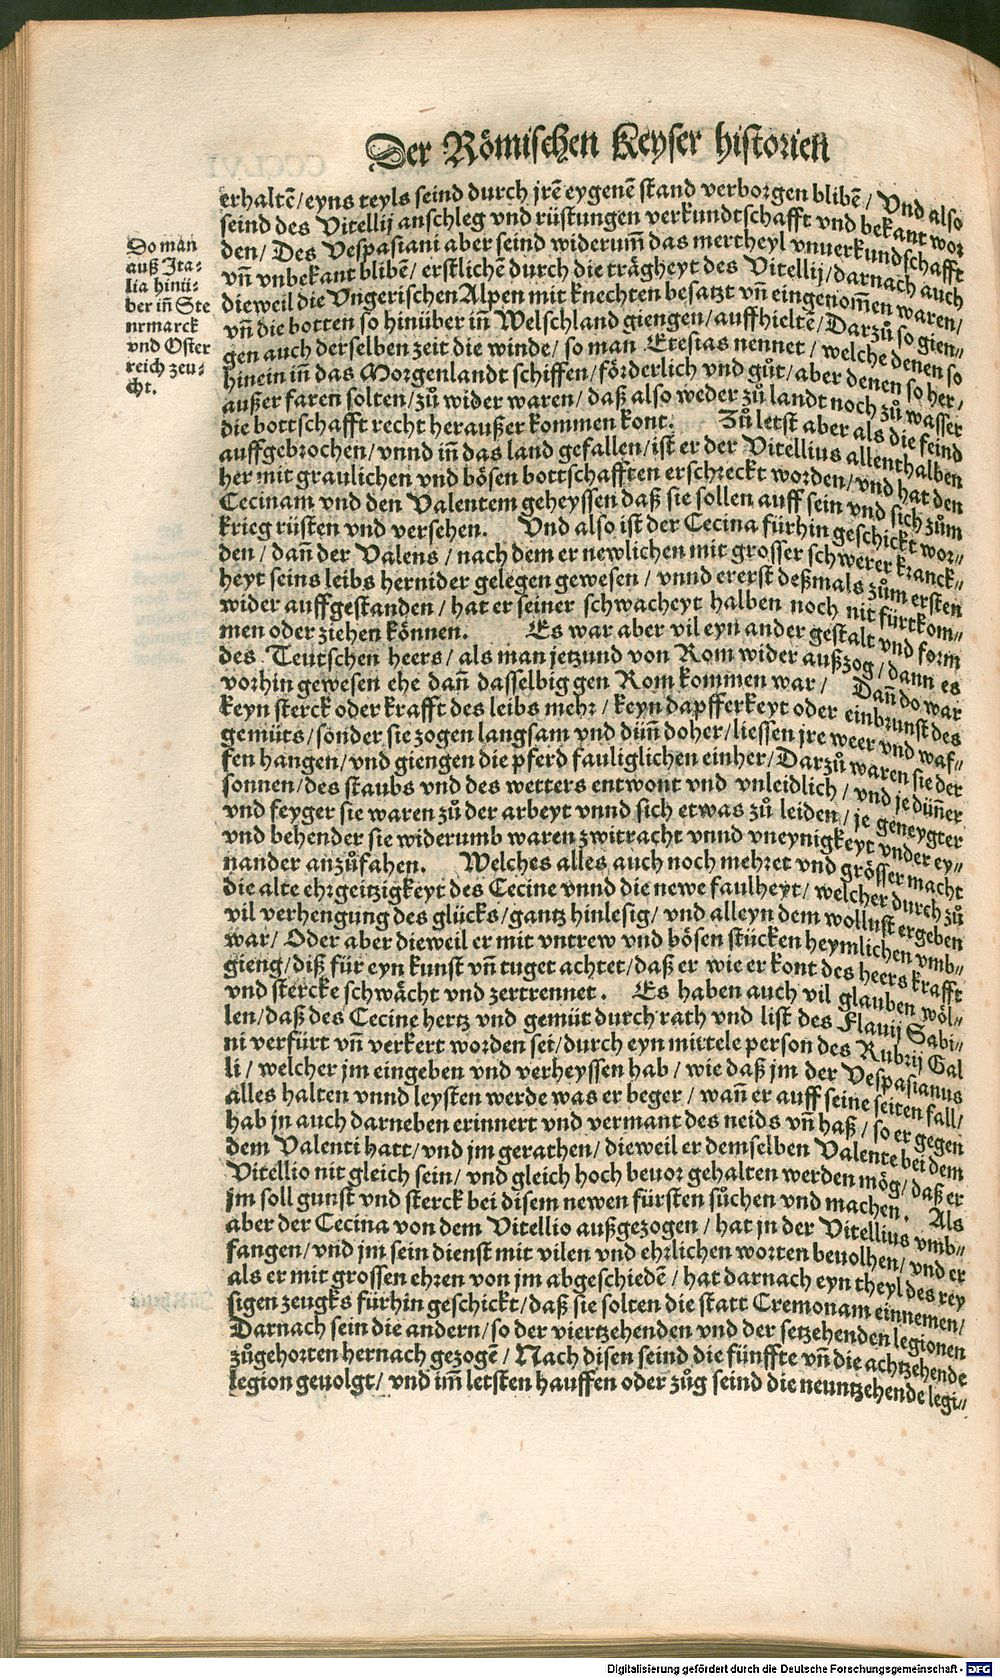 Der Römischen Keyser historien
erhaltē/eyns teyls seind durch jrē eygenē stand verborgen blibē/ Vnd also
seind des Vitellij anschleg vnd rüstungen verkundtschafft vnd bekant wor
den/ Des Vespasiani aber seind widerum̄ das mertheyl vnuerkundschafft
vn̄ vnbekant blibē/ erstlichē durch die trägheyt des Vitellij/darnach auch
dieweil die Vngerischen Alpen mit knechten besatzt vn̄ eingenom̄en waren/
vn̄ die botten so hinüber in̄ Welschland giengen/auffhieltē/Darzů so gien⸗
gen auch derselben zeit die winde/ so man Etesias nennet/ welche denen so
hinein in̄ das Morgenlandt schiffen/förderlich vnd gůt/aber denen so her/
außer faren solten/zů wider waren/ daß also weder zů landt noch zů wasser
die bottschafft recht heraußer kommen kont. Zů letst aber als die feind
auffgebrochen/vnnd in̄ das land gefallen/ist er der Vitellius allenthalben
her mit graulichen vnd bösen bottschafften erschreckt worden/vnd hat den
Cecinam vnd den Valentem geheyssen daß sie sollen auff sein vnd sich zům
krieg rüsten vnd versehen. Vnd also ist der Cecina fürhin geschickt wor⸗
den/ dan̄ der Valens/ nach dem er newlichen mit grosser schwerer kranck⸗
heyt seins leibs hernider gelegen gewesen/ vnnd ererst deßmals zům ersten
wider auffgestanden/ hat er seiner schwacheyt halben noch nit fürtkom⸗
men oder ziehen können. Es war aber vil eyn ander gestalt vnd form
des Teutschen heers/ als man jetzund von Rom wider außzog/ dann es
vorhin gewesen ehe dan̄ dasselbig gen Rom kommen war/ Dan̄ do war
keyn sterck oder krafft des leibs mehr/ keyn dapfferkeyt oder einbrunst des
gemüts/sonder sie zogen langsam vnd dün̄ doher/liessen jre weer vnd waf⸗
fen hangen/vnd giengen die pferd fauliglichen einher/Darzů waren sie der
sonnen/des staubs vnd des wetters entwont vnd vnleidlich/ vnd je dün̄er
vnd feyger sie waren zů der arbeyt vnnd sich etwas zů leiden/ je geneygter
vnd behender sie widerumb waren zwitracht vnnd vneynigkeyt vnder ey⸗
nander anzůfahen. Welches alles auch noch mehret vnd grösser macht
die alte ehrgeitzigkeyt des Cecine vnnd die newe faulheyt/ welcher durch zů
vil verhengung des glücks/gantz hinlesig/ vnd alleyn dem wollust ergeben
war/ Oder aber dieweil er mit vntrew vnd bösen stücken heymlichen vmb⸗
gieng/diß für eyn kunst vn̄ tuget achtet/daß er wie er kont des heers krafft
vnd stercke schwächt vnd zertrennet. Es haben auch vil glauben wöl⸗
len/daß des Cecine hertz vnd gemüt durch rath vnd list des Flauij Sabi⸗
ni verfürt vn̄ verkert worden sei/durch eyn mittele person des Rubrij Gal
li/ welcher jm eingeben vnd verheyssen hab/ wie daß jm der Vespasianus
alles halten vnnd leysten werde was er beger/ wan̄ er auff seine seiten fall/
hab jn auch darneben erinnert vnd vermant des neids vn̄ haß/ so er gegen
dem Valenti hatt/vnd jm gerathen/dieweil er demselben Valente bei dem
Vitellio nit gleich sein/vnd gleich hoch beuor gehalten werden mög/daß er
jm soll gunst vnd sterck bei disem newen fürsten sůchen vnd machen. Als
aber der Cecina von dem Vitellio außgezogen/ hat jn der Vitellius vmb⸗
fangen/vnd jm sein dienst mit vilen vnd ehrlichen worten beuolhen/vnd er
als er mit grossen ehren von jm abgeschiedē/ hat darnach eyn theyl des rey
sigen zeugks fürhin geschickt/daß sie solten die statt Cremonam einnemen/
Darnach sein die andern/so der viertzehenden vnd der setzehenden legionen
zůgehorten hernach gezogē/ Nach disen seind die fünffte vn̄ die achtzehende
legion geuolgt/ vnd im̄ letsten hauffen oder züg seind die neuntzehende legi⸗
Do man
auß Ita⸗
lia hinü⸗
ber in̄ Ste
yrmarck
vnd Oster
reich zeu⸗
cht.
Digitalisierung gefördert durch die Deutsche Forschungsgemeinschaft - DFG